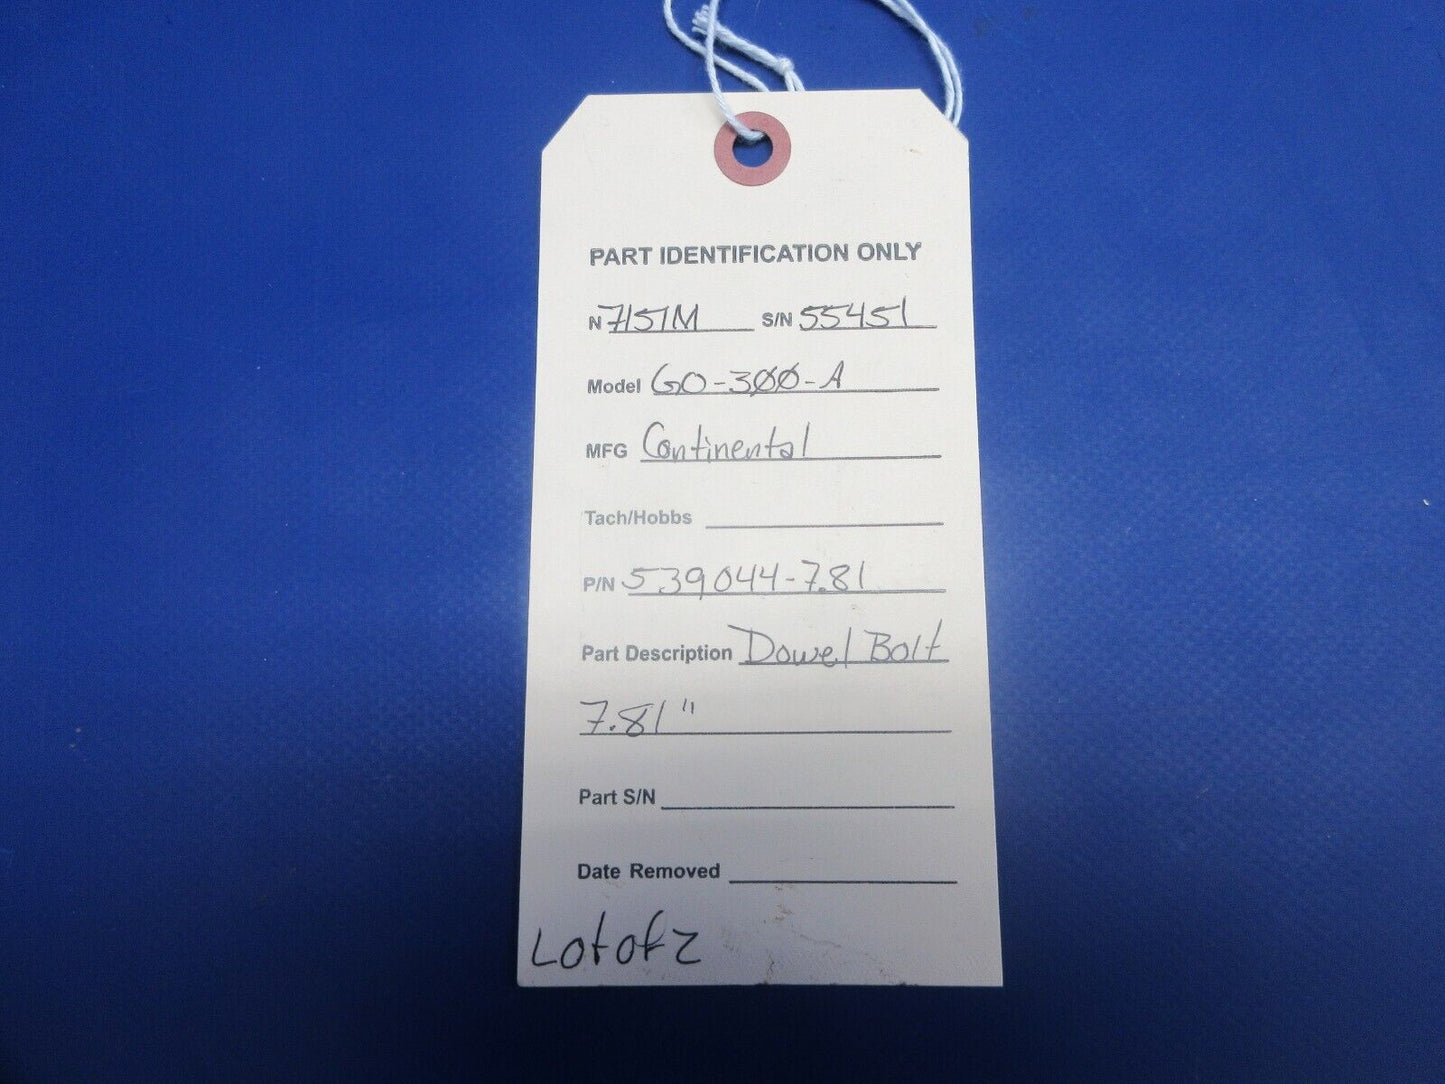 PART IDENTIFICATION ONLY
N 7151M S/N 55451
Model GO-300-A
MFG Continental
Tach/Hobbs
P/N 539044-7.81
Part Description Dowel Bolt
7.81"
Part S/N
Date Removed
Lot of 2